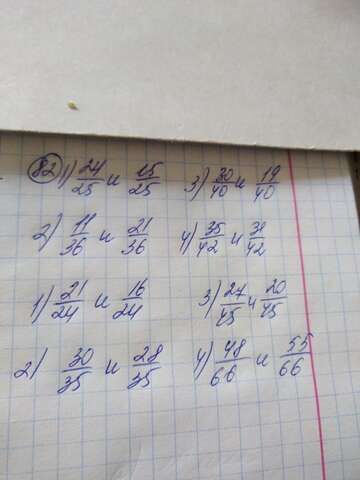 82 1) 24/25 и 15/25 3) 30/40 и 19/40
2) 11/36 и 21/36 4) 35/42 и 31/42
1) 21/24 и 16/24 3) 27/45 и 20/45
2) 30/35 и 28/35 4) 48/66 и 55/66